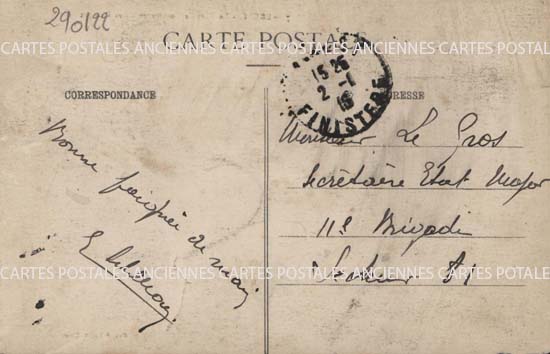 290122
CARTE POSTALE
CARTES POSTALES ANCIENNES CARTES POSTALES ANCIENNES CARTES POSTALES
15 25
2 - 1
16
FINISTERE
CORRESPONDANCE
ADRESSE
Bonne poignée de main
Monsieur Le Gros
Secrétaire Etat Major
11e Brigade
Secteur
CARTES POSTALES ANCIENNES CARTES POSTALES ANCIENNES CARTES POSTALES